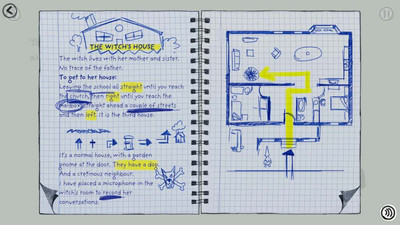 THE WITCH'S HOUSE
The witch lives with her mother and sister.
No trace of the father.
To get to her house:
Leaving the school go straight until you reach
the church, then right until you reach the
mailbox, straight ahead a couple of streets
and then left. It is the third house.
It's a normal house, with a garden
gnome at the door. They have a dog.
And a cretinous neighbour.
I have placed a microphone in the
witch's room to record her
conversations.